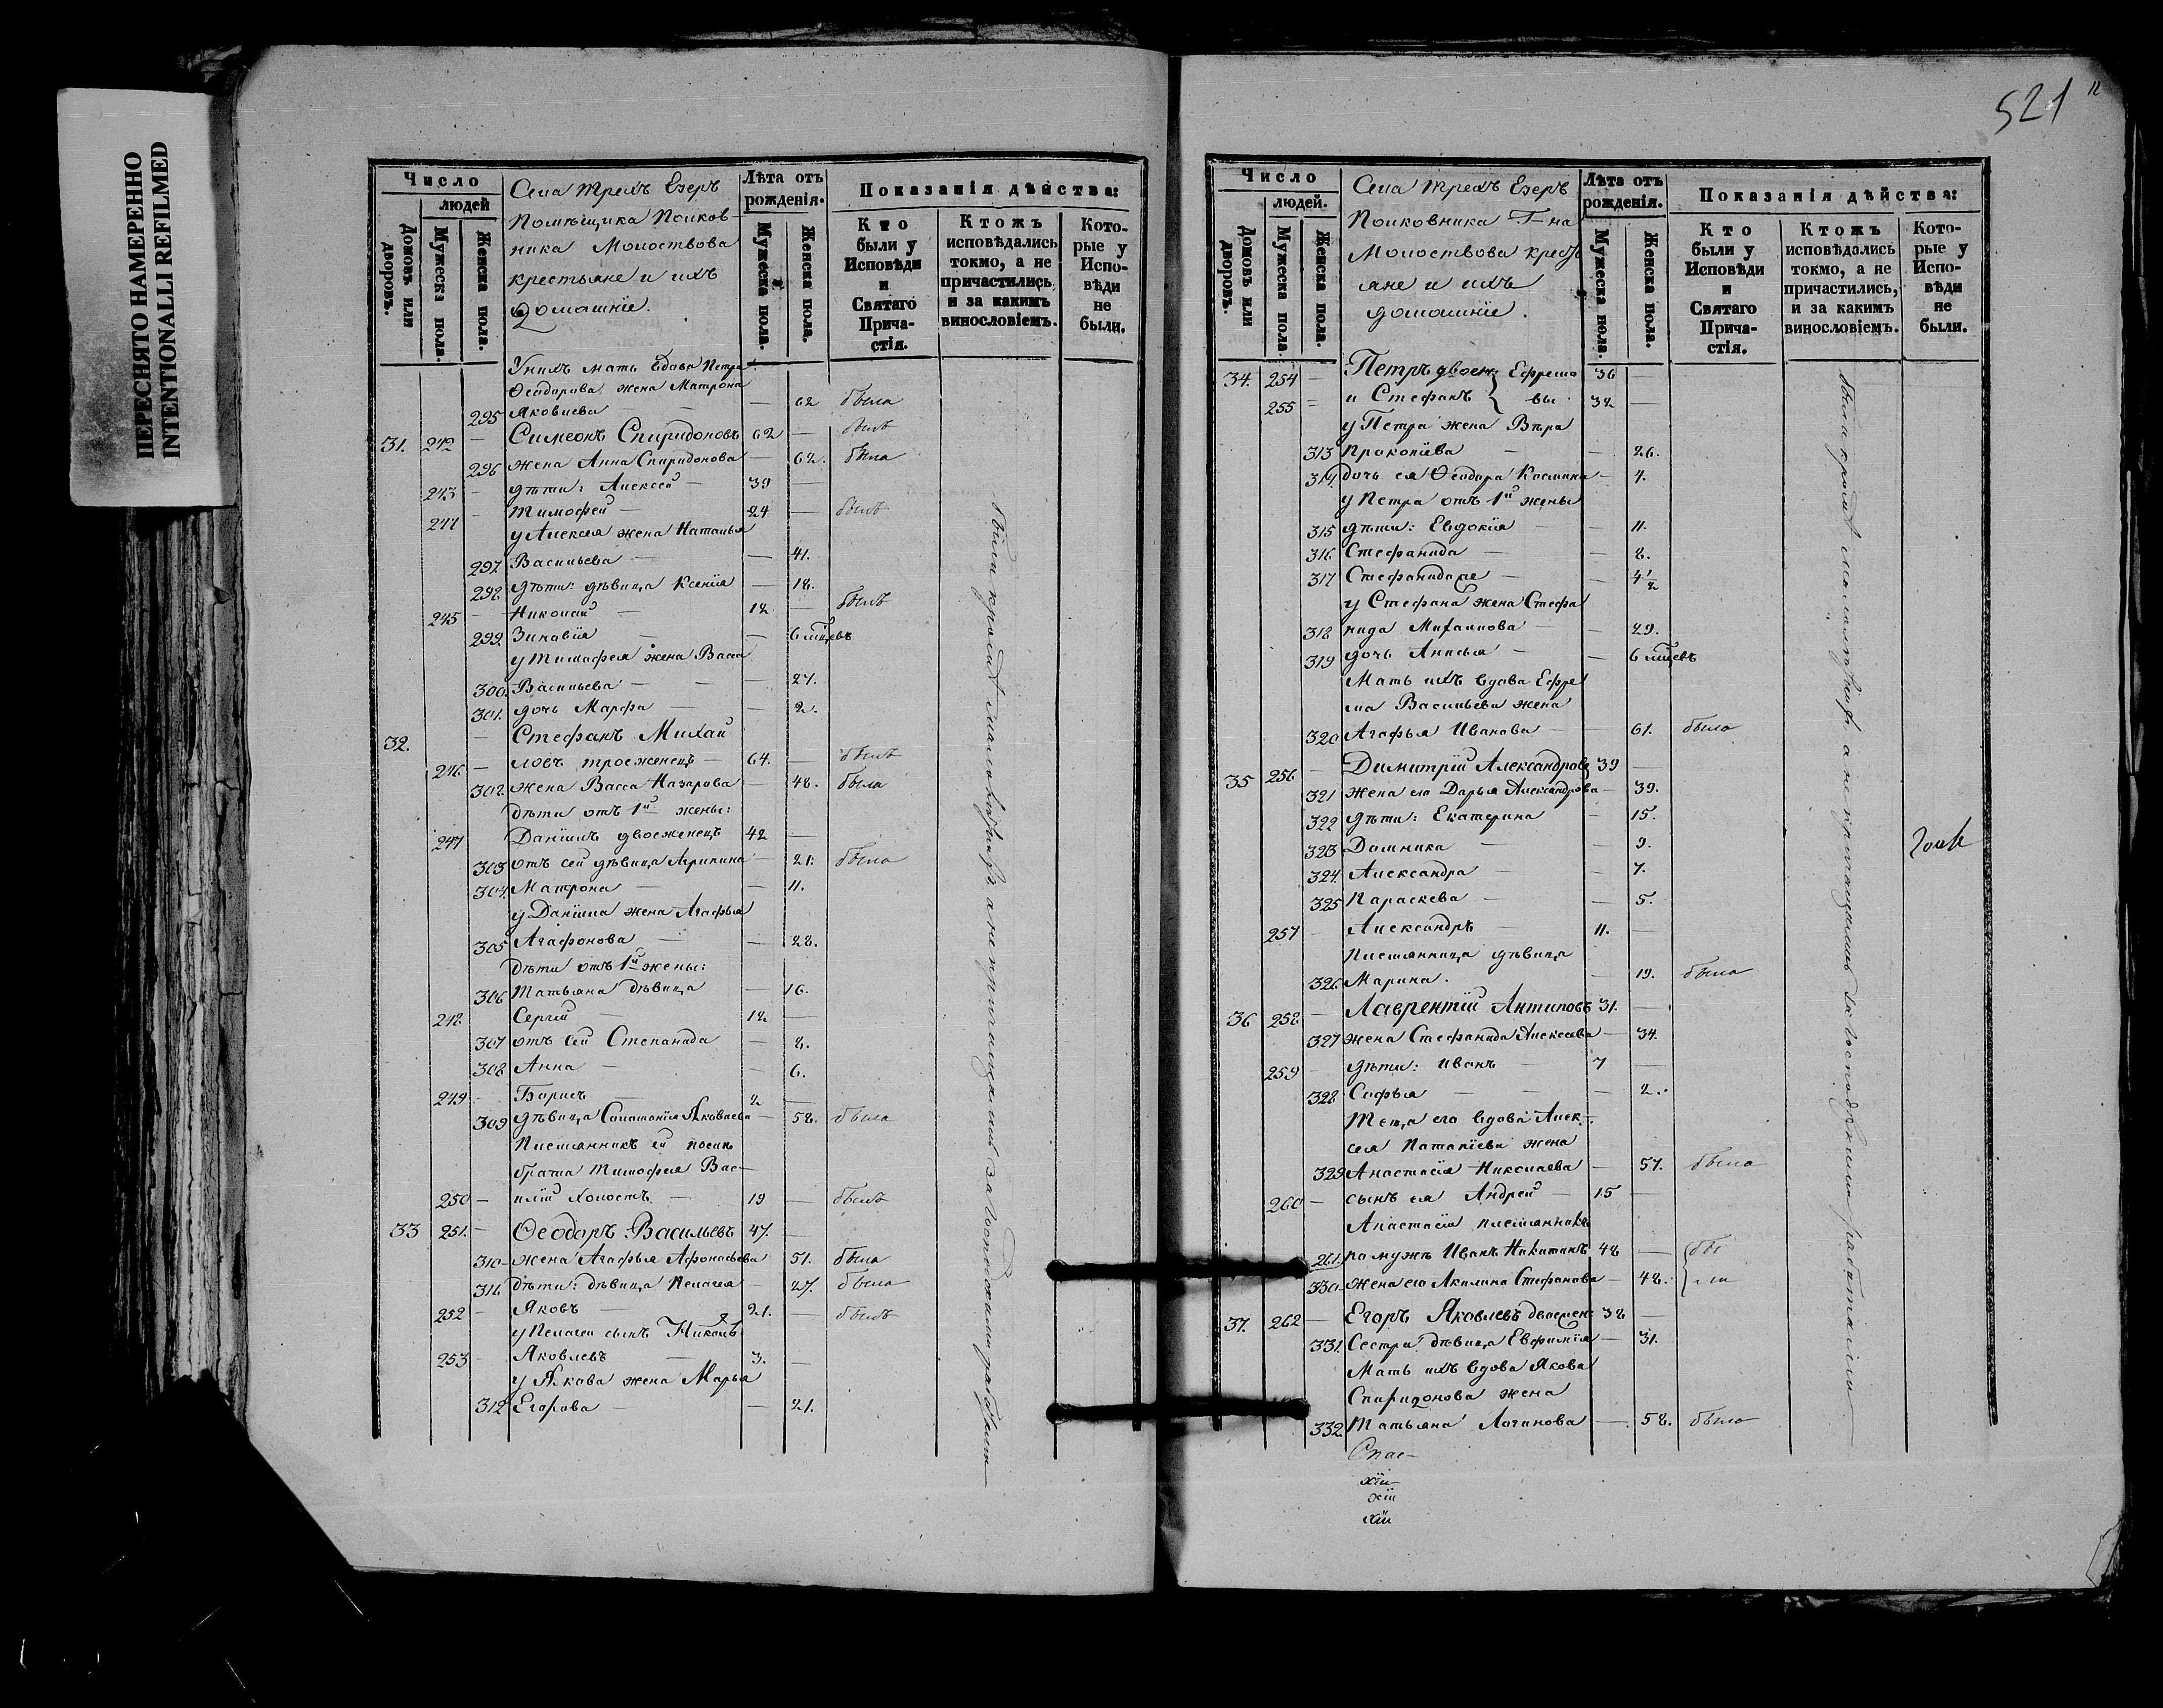 ПЕРЕСНЯТО НАМЕРЕННО
INTENTIONALLI REFILMED
Число
людей
Домовъ или дворовъ.
Мужеска пола.
Женска пола.
Села Трехъ Езеръ
Помѣщика Полков-
ника Молоствова
крестьяне и ихъ
домашніе.
Лѣта отъ рожденія.
Мужеска пола.
Женска пола.
Показанія дѣйства:
Кто были у Исповѣди и Святаго Прича-стія.
Ктожъ исповѣдались токмо, а не причастились, и за какимъ винословіемъ.
Кото-рые у Испо-вѣди не были.
У нихъ мать вдова Петра
Ѳеодорова жена Матрона
295 Яковлева — — 62 была
31. 242 — Симеонъ Спиридоновъ 62 — былъ
296 жена Анна Спиридонова — 62. была
243 — дѣти: Алексей — 39 —
244 — Тимофей — 24 — былъ
у Алексея жена Наталья
297. Васильева — — 41.
298. дѣти: дѣвица Ксенія — 18.
245 — Николай — 12 — былъ
299. Зиновія — — 6 мцевъ
у Тимофея жена Васса
300. Васильева — — 27.
301. дочь Марфа — — 2.
32. — Стефанъ Михай
246 — ловъ троеженецъ — 64. — былъ
302 жена Васса Назарова — 48. была
дѣти отъ 1й жены:
247 Даніилъ двоеженецъ 42 —
303 отъ сей дѣвица Агрипина — 21. была
304. Матрона — — 11.
у Даніила жена Агафья
305 Агафонова — — 28.
дѣти отъ 1й жены:
306 Татьяна дѣвица — 16.
248. Сергей — 12 —
307 отъ сей Степанида — 8.
308 Анна — — 6.
249 — Борисъ — 2 —
309 дѣвица Соломонія Яковлева — 58. была
Племянникъ ей
брата Тимофея Вас-
250 — илій холостъ — 19 — былъ
33 251. — Ѳеодоръ Васильевъ 47. —
310 жена Агафья Афонасьева 51. была
311. дѣти: дѣвица Пелагея — 27. была
252 — Яковъ — 21. — былъ
у Пелагеи сынъ Николай
253 — Яковлевъ — 3. —
у Якова жена Марья
312 Егорова — — 21.
были кромѣ малолѣтнихъ, а не причащались за господскими работами
521
Число
людей.
Домовъ или дворовъ.
Мужеска пола.
Женска пола.
Села Трехъ Езеръ
Полковника Г-на
Молоствова кресть
яне и ихъ
домашніе.
Лѣта отъ рожденія.
Мужеска пола.
Женска пола.
Показанія дѣйства:
Кто были у Исповѣди и Святаго Прича-стія.
Ктожъ исповѣдались токмо, а не причастились, и за какимъ винословіемъ.
Кото-рые у Испо-вѣди не были.
34. 254 — Петръ двоеж: Ефремо 36 —
255 — и Стефанъ вы 32 —
у Петра жена Вѣра
313 Прокопіева — — 26.
314. дочь ея Ѳеодора Космина — 4.
у Петра отъ 1й жены
315 дѣти: Евдокія — — 11.
316 Стефанида — — 8.
317 Стефанида же — — 4 1/2
у Стефана жена Стефа
318 нида Михайлова — — 29.
319 дочь Анисья — — 6 мцевъ
Мать ихъ вдова Ефре
ма Васильева жена
320 Агафья Иванова — — 61. была
35 256 — Димитрій Александровъ 39 —
321 жена его Дарья Александрова — 39.
322 дѣти: Екатерина — 15.
323 Домника — — 9.
324. Александра — — 7.
325 Параскева — — 5.
257 — Александръ — 11. —
Племянница дѣвица
326. Марина. — 19. была
36 258 — Лаврентій Антиповъ 31. —
327 жена Стефанида Алексеева — 34.
259 — дѣти: Иванъ — 7 —
328 Софья — — 2.
Теща его вдова Алек-
сея Потапіева жена
329 Анастасія Николаева — 57. была
260 — сынъ ея Андрей — 15 —
Анастасіи племянникъ
261. по мужѣ Иванъ Никитинъ 48 — бы
330 жена его Акилина Стефанова — 48. ли
37. 262 — Егоръ Яковлевъ двоежен: 38 —
331. Сестра дѣвица Евфимія — 31.
Мать ихъ вдова Якова
Спиридонова жена
332. Татьяна Логинова — 58. была
Спас-
были кромѣ малолѣтнихъ, а не причащались за господскими работами